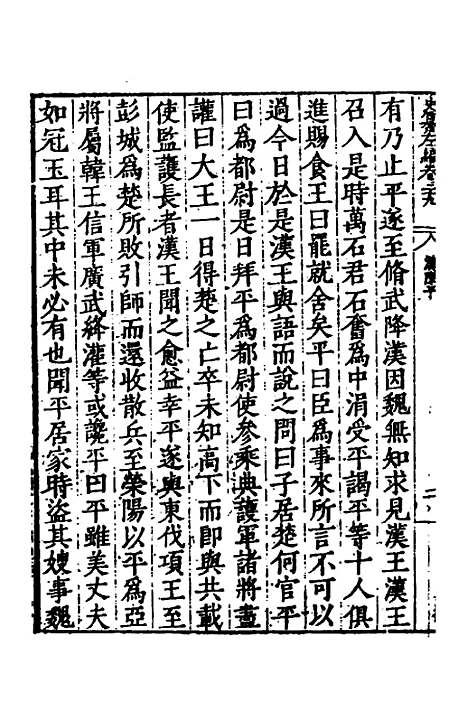 史纂左編卷之九
八
漢陳平
二
有乃止平遂至脩武降漢因魏無知求見漢王漢王
召入是時萬石君石奮爲中涓受平謁平等十人俱
進賜食王曰罷就舍矣平曰臣爲事來所言不可以
過今日於是漢王與語而說之問曰子居楚何官平
曰爲都尉是日拜平爲都尉使參乘典護軍諸將盡
讙曰大王一日得楚之亡卒未知高下而即與共載
使監護長者漢王聞之愈益幸平遂與東伐項王至
彭城爲楚所敗引師而還收散兵至榮陽以平爲亞
將屬韓王信軍廣武絳灌等或讒平曰平雖美丈夫
如冠玉耳其中未必有也聞平居家時盜其嫂事魏